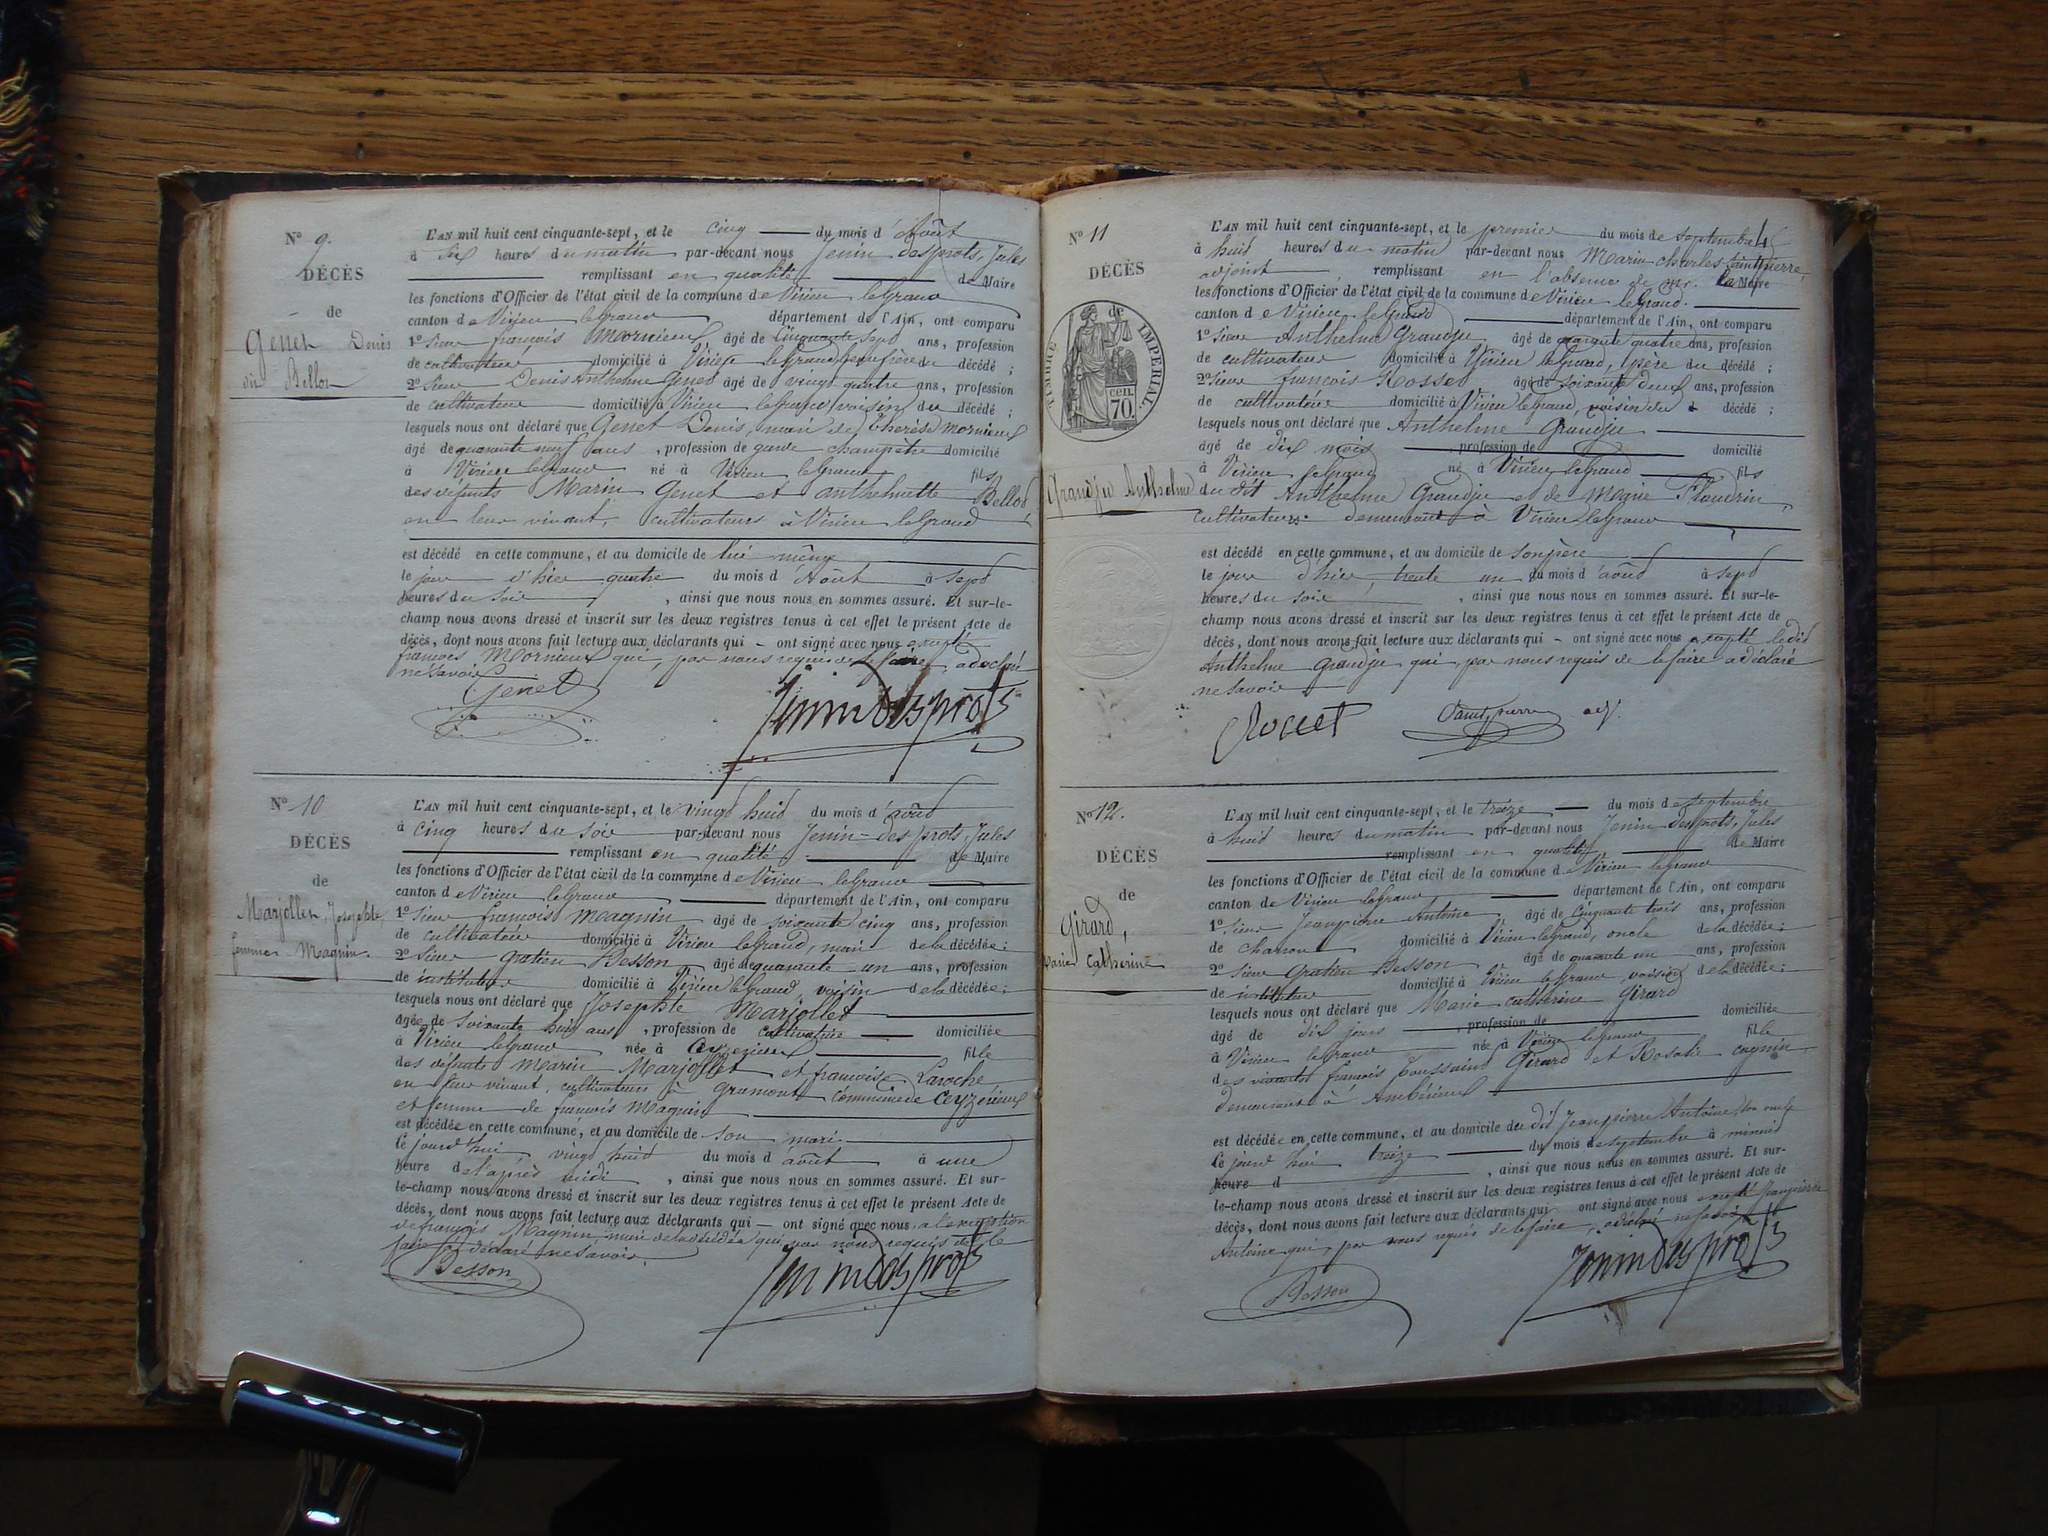 N° 9.
DÉCÈS
de
Genet Denis
dit Bellod
L'AN mil huit cent cinquante-sept, et le cinq du mois d'Août
à six heures du matin par-devant nous Jenin desprots, Jules
remplissant en qualité de Maire
les fonctions d'Officier de l'état civil de la commune de Virieu le Grand
canton de Virieu le Grand département de l'Ain, ont comparu
1° Sieur françois Mornieux âgé de Cinquante Sept ans, profession
de cultivateur domicilié à Virieu le Grand, beau frère du décédé ;
2° Sieur Denis Anthelme Genet âgé de vingt quatre ans, profession
de cultivateur domicilié à Virieu le Grand voisin du décédé ;
lesquels nous ont déclaré que Genet Denis, mari de Thérèse Mornieux
âgé de quarante neuf ans , profession de garde champêtre domicilié
à Virieu le Grand né à Virieu le Grand fils
des défunts Marin Genet et anthelmette Bellod
en leur vivant, cultivateurs à Virieu le Grand
est décédé en cette commune, et au domicile de lui même
le jour d'hier quatre du mois d'Août à sept
heures du soir , ainsi que nous nous en sommes assuré. Et sur-le-
champ nous avons dressé et inscrit sur les deux registres tenus à cet effet le présent Acte de
décès, dont nous avons fait lecture aux déclarants qui – ont signé avec nous excepté
françois Mornieux qui, par nous requis de le faire, a déclaré
ne savoir
Genet Jenin desprots
N° 10
DÉCÈS
de
Marjollet, Josephte,
femme Magnin.
L'AN mil huit cent cinquante-sept, et le vingt huit du mois d'août
à cinq heures du soir par-devant nous Jenin-des prots, Jules
remplissant en qualité de Maire
les fonctions d'Officier de l'état civil de la commune de Virieu le Grand
canton de Virieu le Grand département de l'Ain, ont comparu
1° Sieur françois Magnin âgé de soixante cinq ans, profession
de cultivateur domicilié à Virieu le Grand, mari de la décédée ;
2° Sieur Gratien Besson âgé de quarante un ans, profession
de instituteur domicilié à Virieu le Grand, voisin de la décédée ;
lesquels nous ont déclaré que Josephte Marjollet
âgée de soixante huit ans , profession de cultivatrice domiciliée
à Virieu le Grand née à Ceyzerieux fille
des défunts Marin Marjollet et françoise Laroche
en leur vivant, cultivateurs à Gramont commune de Ceyzérieux
et femme de françois Magnin
est décédée en cette commune, et au domicile de son mari
Ce jourd'hui vingt huit du mois d'août à une
heure de l'après midi , ainsi que nous nous en sommes assuré. Et sur-
le-champ nous avons dressé et inscrit sur les deux registres tenus à cet effet le présent Acte de
décès, dont nous avons fait lecture aux déclarants qui – ont signé avec nous, a l'exception
de françois Magnin, mari de la décédée qui, par nous requis de le
faire a déclaré ne savoir.
Besson Jenin desprots
N° 11
DÉCÈS
de
TIMBRE IMPÉRIAL.
70 cen.
Grandju Anthelme
L'AN mil huit cent cinquante-sept, et le premier du mois de septembre
à huit heures du matin par-devant nous Marin Charles Saintpierre,
adjoint remplissant en l'absence de Mr. le Maire
les fonctions d'Officier de l'état civil de la commune de Virieu le Grand.
canton de Virieu le Grand département de l'Ain, ont comparu
1° Sieur Anthelme Grandju âgé de quarante quatre ans, profession
de cultivateur domicilié à Virieu le Grand, père du décédé ;
2° Sieur françois Rosset âgé de soixante deux ans, profession
de cultivateur domicilié à Virieu le Grand, voisin du décédé ;
lesquels nous ont déclaré que Anthelme Grandju
âgé de dix mois , profession de domicilié
à Virieu le Grand né à Virieu le Grand fils
du dit Anthelme Grandju et de Marie Flaudrin,
cultivateurs demeurant à Virieu le Grand
est décédé en cette commune, et au domicile de son père
le jour d'hier, trente un du mois d'août à sept
heures du soir , ainsi que nous nous en sommes assuré. Et sur-le-
champ nous avons dressé et inscrit sur les deux registres tenus à cet effet le présent Acte de
décès, dont nous avons fait lecture aux déclarants qui – ont signé avec nous excepté le dit
Anthelme Grandju qui, par nous requis de le faire a déclaré
ne savoir
Rosset Saintpierre adj.
N° 12.
DÉCÈS
de
Girard,
Marie Catherine
L'AN mil huit cent cinquante-sept, et le treize du mois de septembre
à huit heures du matin par-devant nous Jenin desprots, Jules
remplissant en qualité de Maire
les fonctions d'Officier de l'état civil de la commune de Virieu le Grand
canton de Virieu le Grand département de l'Ain, ont comparu
1° Sieur Jeanpierre Antoine âgé de Cinquante trois ans, profession
de charron domicilié à Virieu le Grand, oncle de la décédée ;
2° Sieur Gratien Besson âgé de quarante un ans, profession
de instituteur domicilié à Virieu le Grand, voisin de la décédée ;
lesquels nous ont déclaré que Marie catherine Girard
âgé de dix jours , profession de domiciliée
à Virieu le Grand née à Virieu le Grand fille
des vivants françois Toussaint Girard et Rosalie cognin
demeurant à Ambérieux
est décédée en cette commune, et au domicile du dit Jeanpierre Antoine, son oncle
Ce jourd'hui treize du mois de septembre à minuit
heure d , ainsi que nous nous en sommes assuré. Et sur-
le-champ nous avons dressé et inscrit sur les deux registres tenus à cet effet le présent Acte de
décès, dont nous avons fait lecture aux déclarants qui ont signé avec nous excepté Jeanpierre
Antoine qui, par nous requis de le faire, a déclaré ne savoir
Besson Jenin desprots